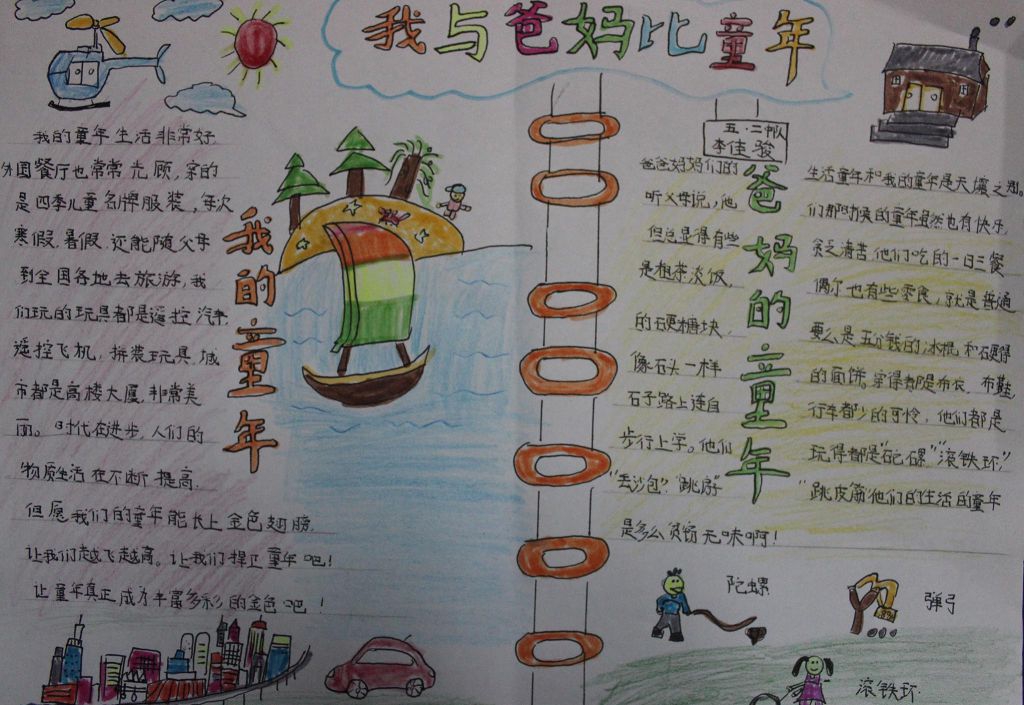 我与爸妈比童年
我的童年生活非常好,
外国餐厅也常常光顾,穿的
是四季儿童名牌服装,每次
寒假.暑假.还能随父母
到全国各地去旅游,我
们玩的玩具都是遥控汽车,
遥控飞机,拼装玩具,城
市都是高楼大厦,非常美
丽。时代在进步,人们的
物质生活在不断提高.
但愿我们的童年能长上金色翅膀.
让我们越飞越高。让我们捍卫童年吧!
让童年真正成为丰富多彩的金色吧!
我的童年
五·二中队
李佳骏
爸爸妈妈们的
听父母说,他
但总显得有些
是粗茶淡饭,
的硬糖块,
像石头一样
石子路上连自
步行上学。他们
"丢沙包""跳房"
是多么贫穷无味啊!
爸妈的童年
生活童年和我的童年是天壤之别。
们那时候的童年虽然也有快乐,
贫乏清苦他们吃的一日三餐
偶尔也有些零食,就是普通
要么是五分钱的冰棍和硬得
的面饼,穿得都是布衣、布鞋,
行车都少的可怜,他们都是
玩得都是"砣螺""滚铁环,"
"跳皮筋他们的生活的童年
陀螺
弹弓
滚铁环